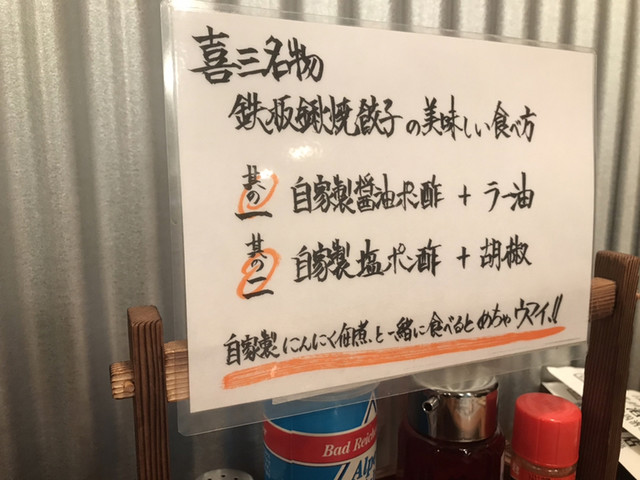 喜三名物
鉄板鍬焼餃子の美味しい食べ方
其の一 自家製醤油ポン酢 + ラー油
其の二 自家製塩ポン酢 + 胡椒
自家製にんにく佃煮、と一緒に食べるとめちゃウマイ!!
Bad Reich
Alpe